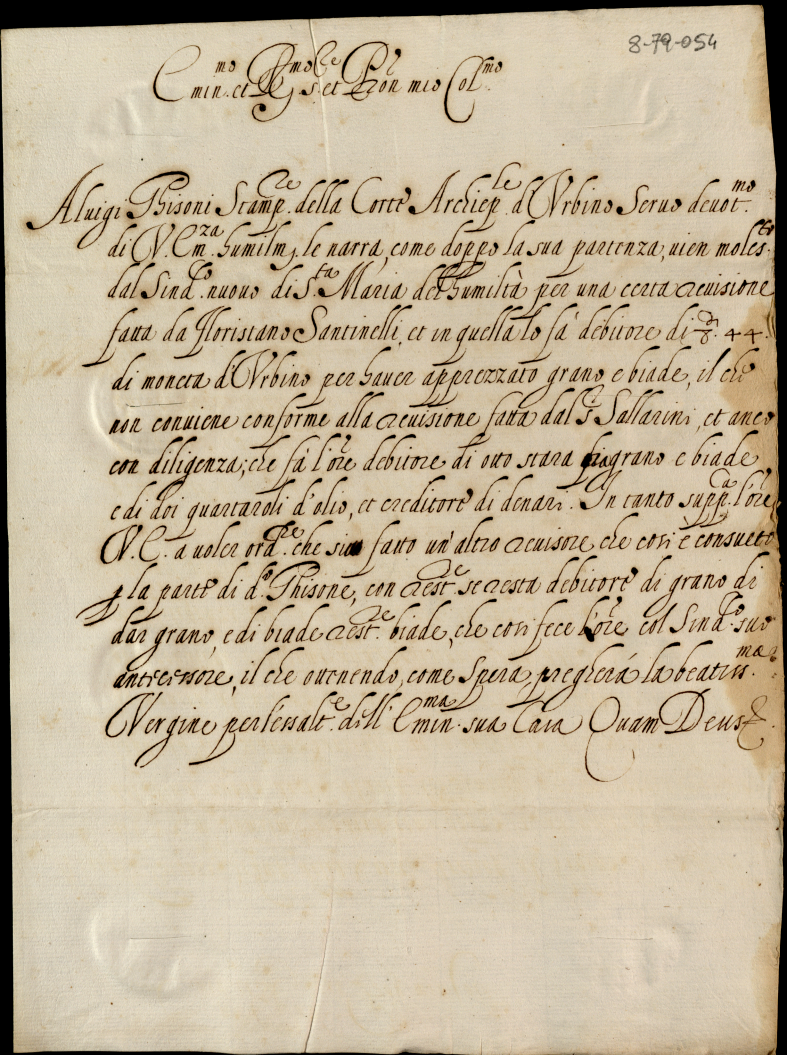 8-79-054
Emin.mo et R.mo Sre et Pron mio Col.mo
Aluigi Ghisoni Stamp.re della Corte Archiep.le d'Urbino Servo devot.mo
di V. Em.za humilm. le narra, come doppo la sua partenza, vien molest.to
dal Sind.co nuovo di S.ta Maria del'humiltà per una certa revisione
fatta da Floristano Santinelli, et in quella lo fà debitore di 44.
di moneta d'Urbino per haver apprezzato grano, e biade, il che
non conviene conforme alla revisione fatta dal Sr Sallarini, et anco
con diligenza, che fà l'ore debitore di otto stara grano e biade
e di doi quartaroli d'olio, et creditore di denari. In tanto supp.ca l'ore
V. E. a voler ord.re che sia fatto un'altro revisore che così è consueto
p la parte di d.o Ghisone, con rest.re se resta debitore di grano di
dar grano, e di biade rest.re biade, che così fece l'ore col Sind.co suo
antecessore, il che ottenendo, come spera, pregherà la beatiss.ma
Vergine per l'essalt.e dell' Emin.ma sua Casa Quam Deus &.